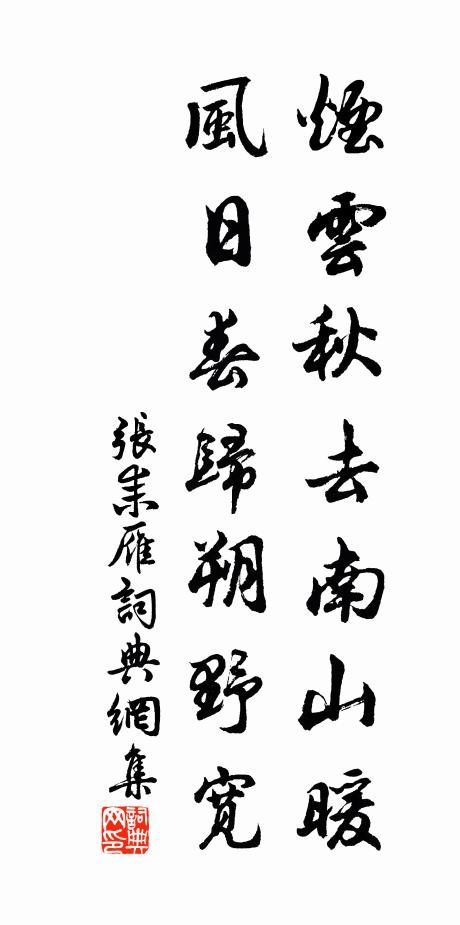 煙雲秋去南山暖
風日春歸朔野寬
張耒雁詞典網集
詞典
网印